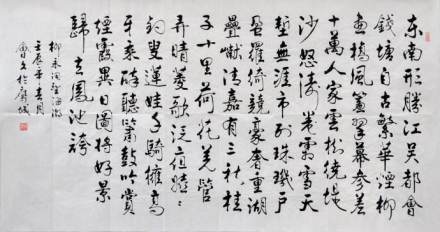 东南形胜江吴都会
钱塘自古繁华烟柳
画桥风帘翠幕参差
十万人家云树绕堤
沙怒涛卷霜雪天
堑无涯市列珠玑户
盈罗绮竞豪奢重湖
叠巘清嘉有三秋桂
子十里荷花羌管
弄晴菱歌泛夜嬉嬉
钓叟莲娃千骑拥高
牙乘醉听箫鼓吟赏
烟霞异日图将好景
归去凤池夸
柳永词望海潮
壬辰年